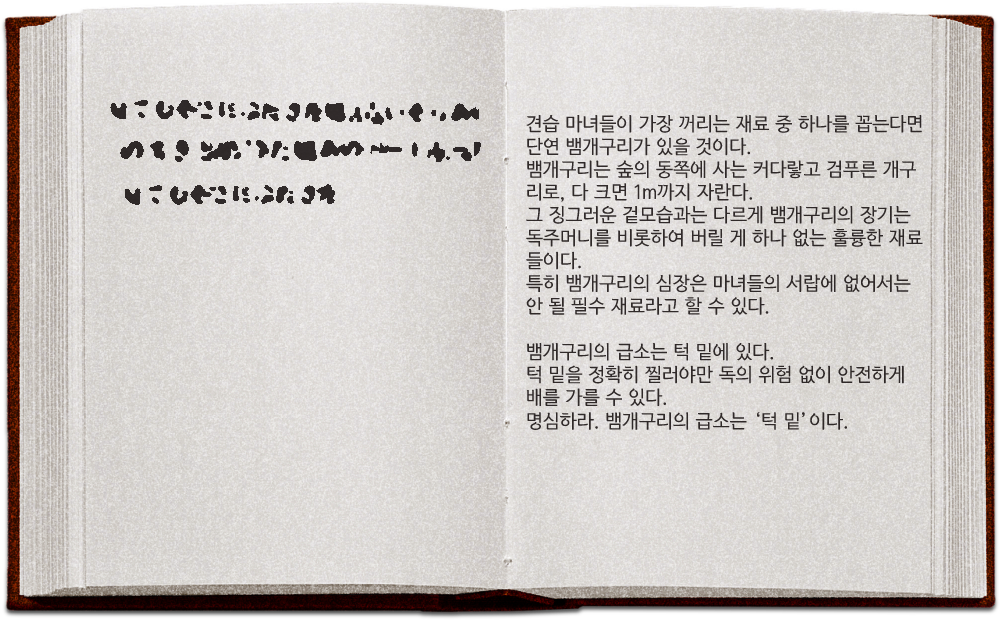 견습 마녀들이 가장 꺼리는 재료 중 하나를 꼽는다면
단연 뱀개구리가 있을 것이다.
뱀개구리는 숲의 동쪽에 사는 커다랗고 검푸른 개구
리로, 다 크면 1m까지 자란다.
그 징그러운 겉모습과는 다르게 뱀개구리의 장기는
독주머니를 비롯하여 버릴 게 하나 없는 훌륭한 재료
들이다.
특히 뱀개구리의 심장은 마녀들의 서랍에 없어서는
안 될 필수 재료라고 할 수 있다.
뱀개구리의 급소는 턱 밑에 있다.
턱 밑을 정확히 찔러야만 독의 위험 없이 안전하게
배를 가를 수 있다.
명심하라. 뱀개구리의 급소는 ‘턱 밑’이다.